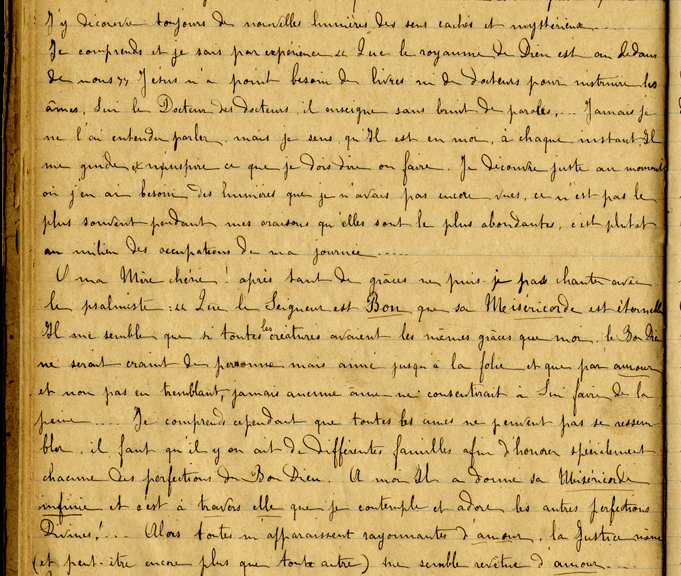 J'y découvre toujours de nouvelles lumières des sens cachés et mystérieux.....
Je comprends et je sais par expérience « Que le royaume de Dieu est au dedans
de nous » Jésus n'a point besoin de livres ni de docteurs pour instruire les
âmes, Lui le Docteur des docteurs, il enseigne sans bruit de paroles,... Jamais je
ne l'ai entendu parler, mais je sens qu'Il est en moi, à chaque instant, Il
me guide, et m'inspire ce que je dois dire ou faire. Je découvre juste au moment
où j'en ai besoin des lumières que je n'avais pas encore vues, ce n'est pas le
plus souvent pendant mes oraisons qu'elles sont le plus abondantes, c'est plutôt
au milieu des occupations de ma journée.....
O ma Mère chérie! après tant de grâces ne puis-je pas chanter avec
le psalmiste: « Que le Seigneur est Bon que sa Miséricorde est éternelle
Il me semble que si toutes les créatures avaient les mêmes grâces que moi, le Bon Dieu
ne serait craint de personne mais aimé jusqu'à la folie, et que par amour,
et non pas en tremblant, jamais aucune âme ne consentirait à Lui faire de la
peine.... Je comprends cependant que toutes les âmes ne peuvent pas se ressem
bler, il faut qu'il y en ait de différentes familles afin d'honorer spécialement
chacune des perfections du Bon Dieu. A moi Il a donné sa Miséricorde
infinie et c'est à travers elle que je contemple et adore les autres perfections
Divines!... Alors toutes m'apparaissent rayonnantes d'amour, la Justice même
(et peut-être encore plus que toute autre) me semble revêtue d'amour.....